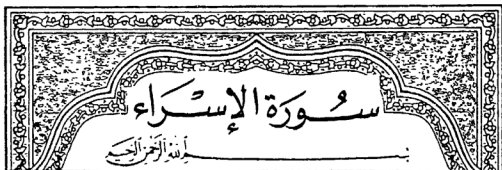 سُورَةُ الإِسْرَاء
بِسْمِ اللهِ الرَّحْمٰنِ الرَّحِيمِ